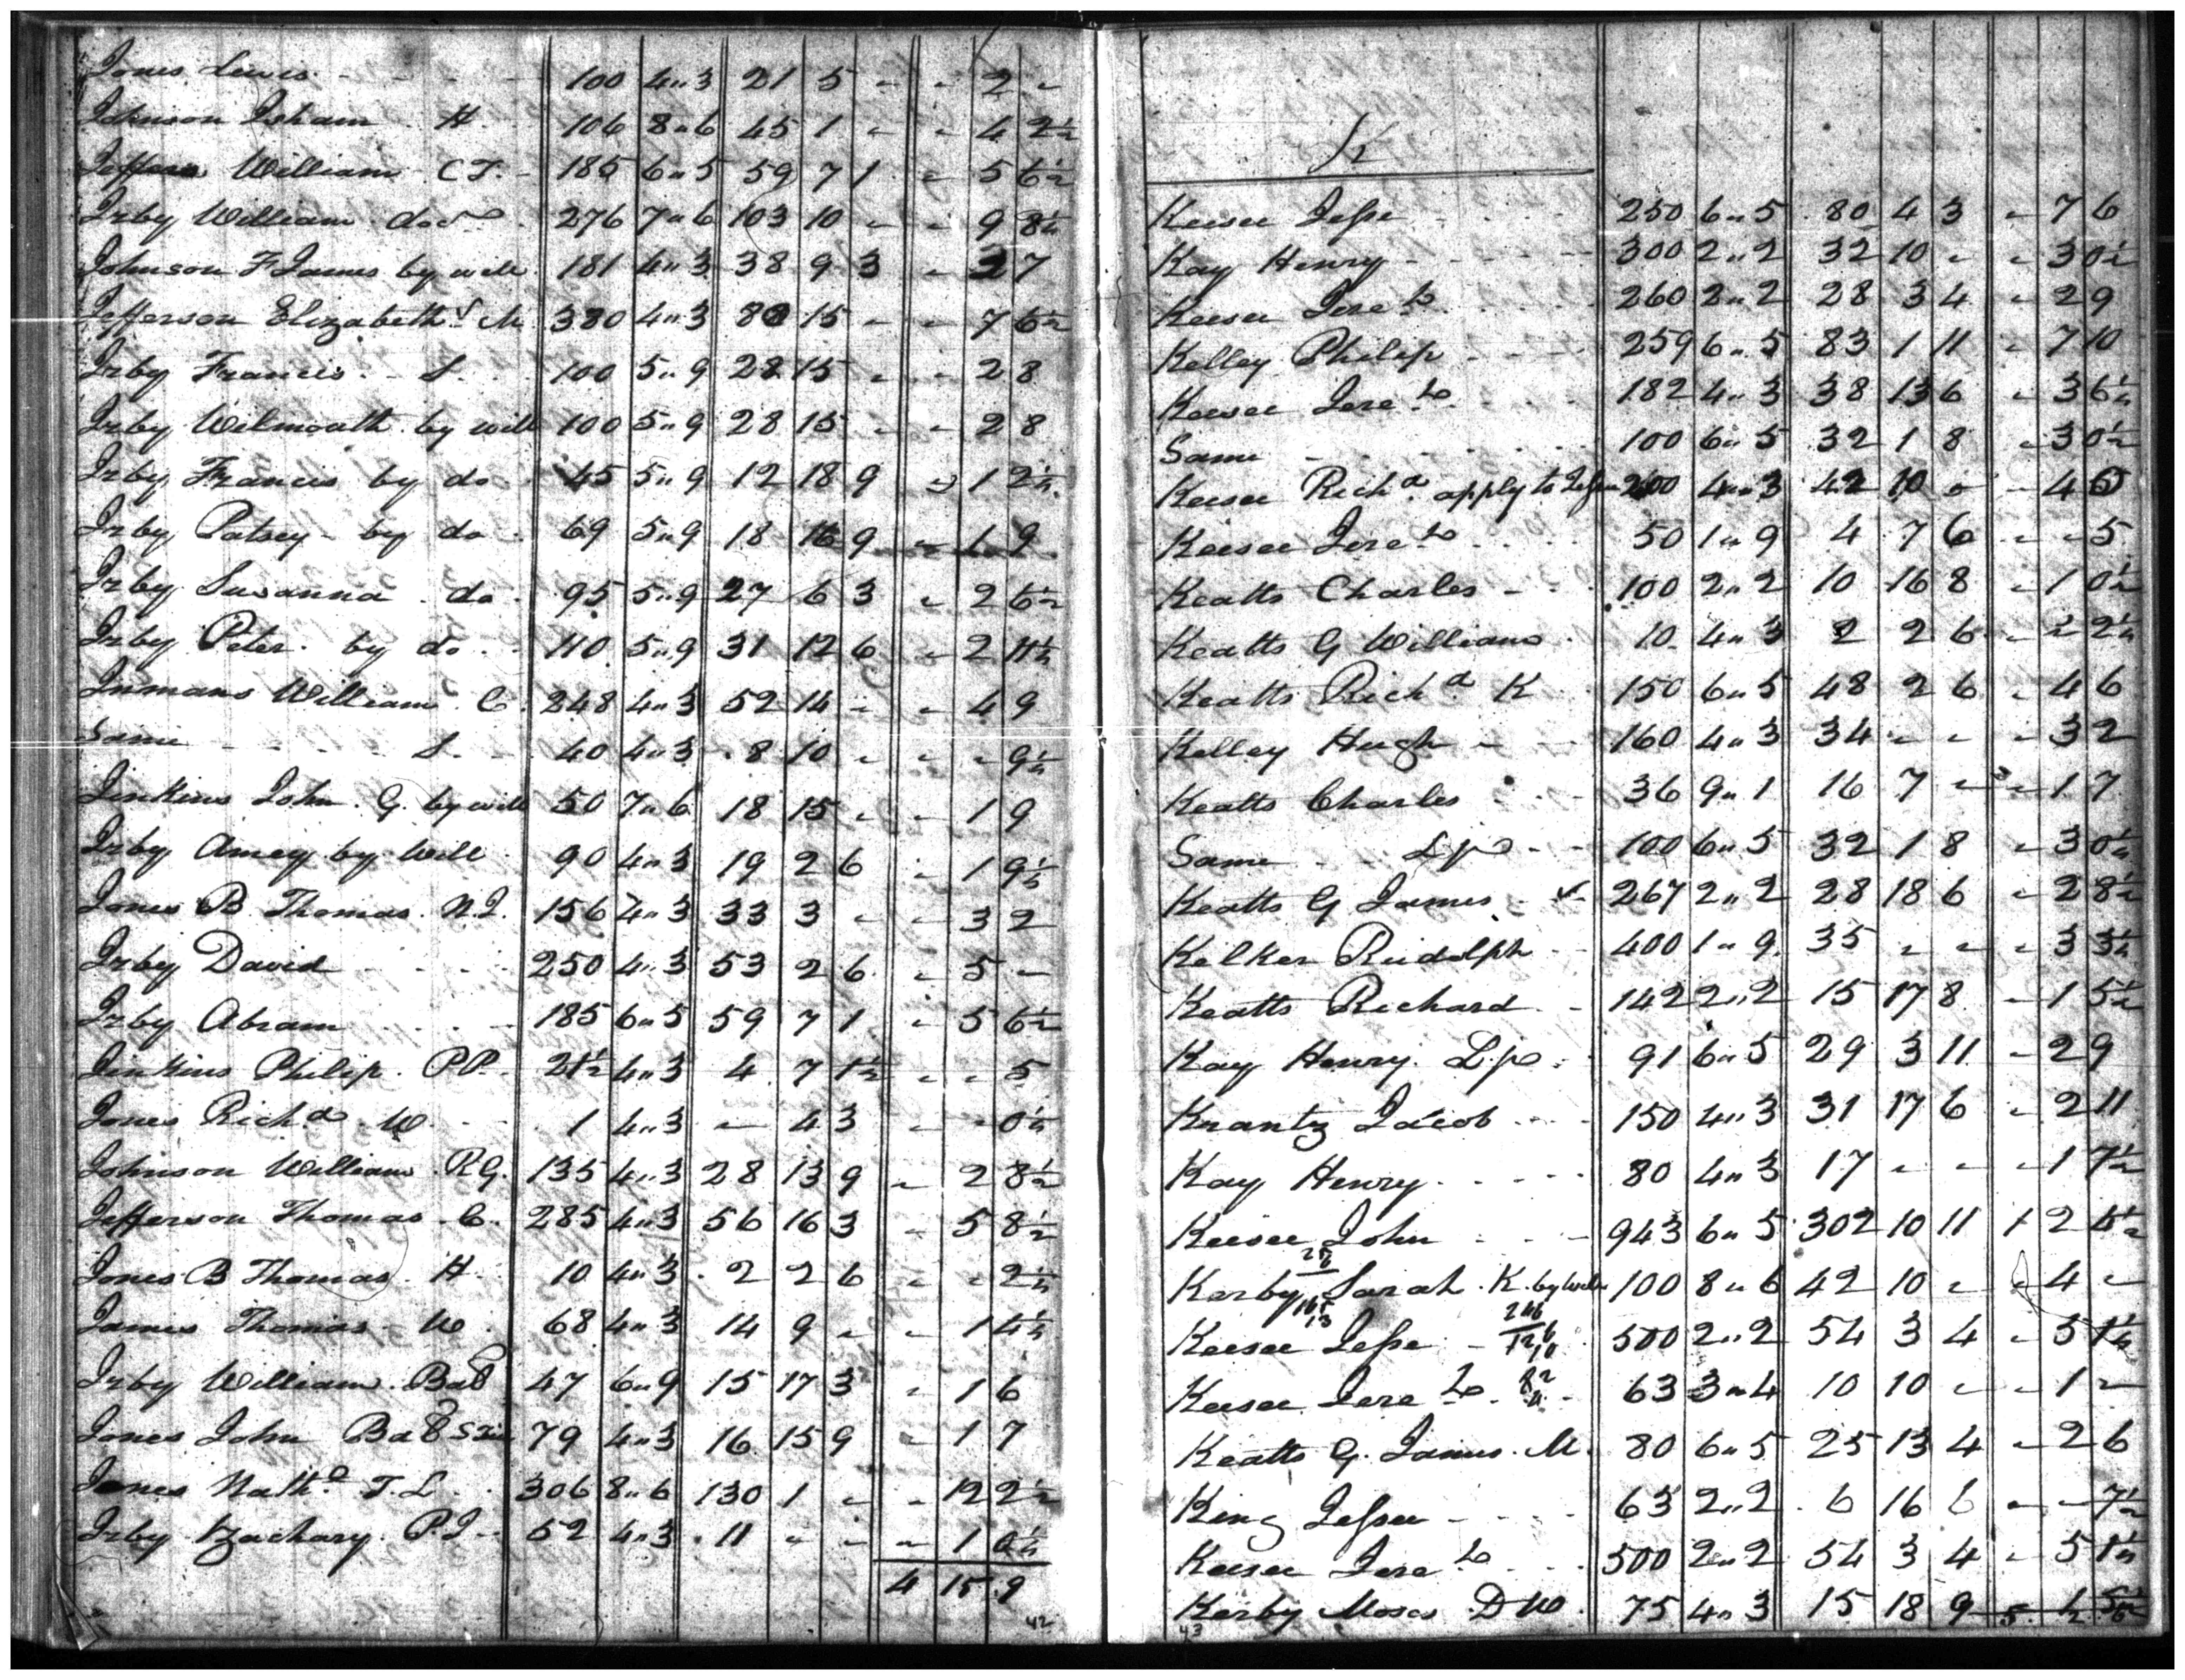 Jones Lewis 100 4 " 3 21 5 " " 2 "
Johnson Isham H 106 8 " 6 45 1 " " 4 2½
William C T. 185 6 " 5 59 7 1 " 5 6½
Irby William do 276 7 " 6 103 10 " " 9 8½
Johnson F James by will 181 4 " 3 38 9 3 " 3 7
Jefferson Elizabeth M 380 4 " 3 80 15 " " 7 6½
Irby Francis S. 100 5 " 9 28 15 " " 2 8
Irby Wilmoath by will 100 5 " 9 28 15 " " 2 8
Irby Francis by do 45 5 " 9 12 18 9 " 1 2½
Irby Patsey by do 69 5 " 9 18 16 9 " 1 9
Irby Susanna do 95 5 " 9 27 6 3 " 2 6½
Irby Peter by do 110 5 " 9 31 12 6 " 2 11½
Inmans William C. 248 4 " 3 52 14 " " 4 9
Same S. 40 4 " 3 8 10 " " " 9½
Jenkins John G. by will 50 7 " 6 18 15 " " 1 9
Irby Amey by Will 90 4 " 3 19 2 6 " 1 9½
Jones B Thomas N. I. 156 4 " 3 33 3 " " 3 2
Irby David 250 4 " 3 53 2 6 " 5 "
Irby Abram 185 6 " 5 59 7 1 " 5 6½
Jenkins Philip P P. 21½ 4 " 3 4 7 1½ " " 5
Jones Richd W 1 4 " 3 " 4 3 " " 0½
Johnson William R G. 135 4 " 3 28 13 9 " 2 8½
Jefferson Thomas C. 285 4 " 3 56 16 3 " 5 8½
Jones B Thomas H 10 4 " 3 2 2 6 " " 2½
James Thomas W 68 4 " 3 14 9 " " 1 4½
Irby William Ba8 47 6 " 9 15 17 3 " 1 6
Jones John Ba8 79 4 " 3 16 15 9 " 1 7
Jones Nathl T. L. 306 8 " 6 130 1 " " 12 2½
Irby Zachary P I 52 4 " 3 11 " " " 1 0½
4 15 9
42
K
Keesee Jesse 250 6 " 5 80 4 3 " 7 6
Kay Henry 300 2 " 2 32 10 " " 3 0½
Keesee Jereh 260 2 " 2 28 3 4 " 2 9
Kelley Philip 259 6 " 5 83 1 11 " 7 10
Keesee Jereh 182 4 " 3 38 13 6 " 3 6½
Same 100 6 " 5 32 1 8 " 3 0½
Keesee Richd apply to Jesse 200 4 " 3 42 10 " " 4 0
Keesee Jereh 50 1 " 9 4 7 6 " " 5
Keatts Charles 100 2 " 2 10 16 8 " 1 0½
Keatts G William 10 4 " 3 2 2 6 " " 2½
Keatts Richd K 150 6 " 5 48 2 6 " 4 6
Kelley Hugh 160 4 " 3 34 " " " 3 2
Keatts Charles 36 9 " 1 16 7 " " 1 7
Same L p 100 6 " 5 32 1 8 " 3 0½
Keatts G James 267 2 " 2 28 18 6 " 2 8½
Kelker Rudolph 400 1 " 9 35 " " " 3 3½
Keatts Richard 142 2 " 2 15 17 8 " 1 5½
Kay Henry L p 91 6 " 5 29 3 11 " 2 9
Krantz Jacob 150 4 " 3 31 17 6 " 2 11
Kay Henry 80 4 " 3 17 " " " 1 7½
Keesee John 943 6 " 5 302 10 11 1 2 4½
Kerby Sarah K. by will 100 8 " 6 42 10 " " 4 "
Keesee Jesse 500 2 " 2 54 3 4 " 5 1½
Keesee Jereh 63 3 " 4 10 10 " " 1 "
Keatts G. James M. 80 6 " 5 25 13 4 " 2 6
King Jesse 63 2 " 2 6 16 6 " " 7½
Keesee Jereh 500 2 " 2 54 3 4 " 5 1½
Kerby Moses D W 75 4 " 3 15 18 9 1 5½
43